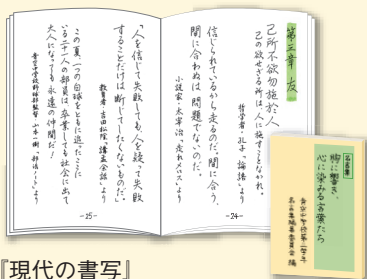 第三章 友
己所不欲勿施於人
己の欲せざる所は、人に施すことなかれ。
哲学者・孔子「論語」より
信じられているから走るのだ。間に合う、
間に合わぬは問題でないのだ。
小説家・太宰治「走れメロス」より
-24-
「人を信じて失敗しても、人を疑って失敗
することだけは断じてしたくないものだ。」
教育者・吉田松陰「講孟余話」より
この夏、一つの白球をともに追ったここに
いる二十一人の部員は、卒業しても社会に出て
大人になっても永遠の仲間だ!
-25-
名言集
胸に響き、
心に染みる言葉たち
『現代の書写』